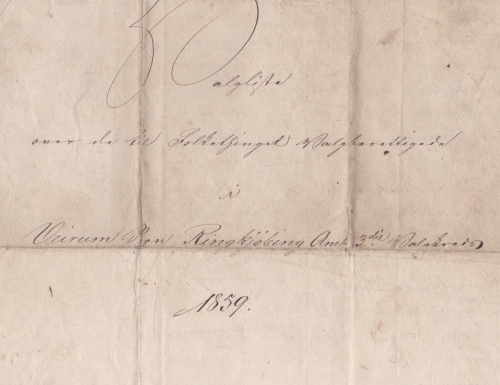 Valgliste
over de til Folkethinget Valgberettigede
i
Veirum Sogn Ringkjøbing Amts 3die Valgkreds
1859.